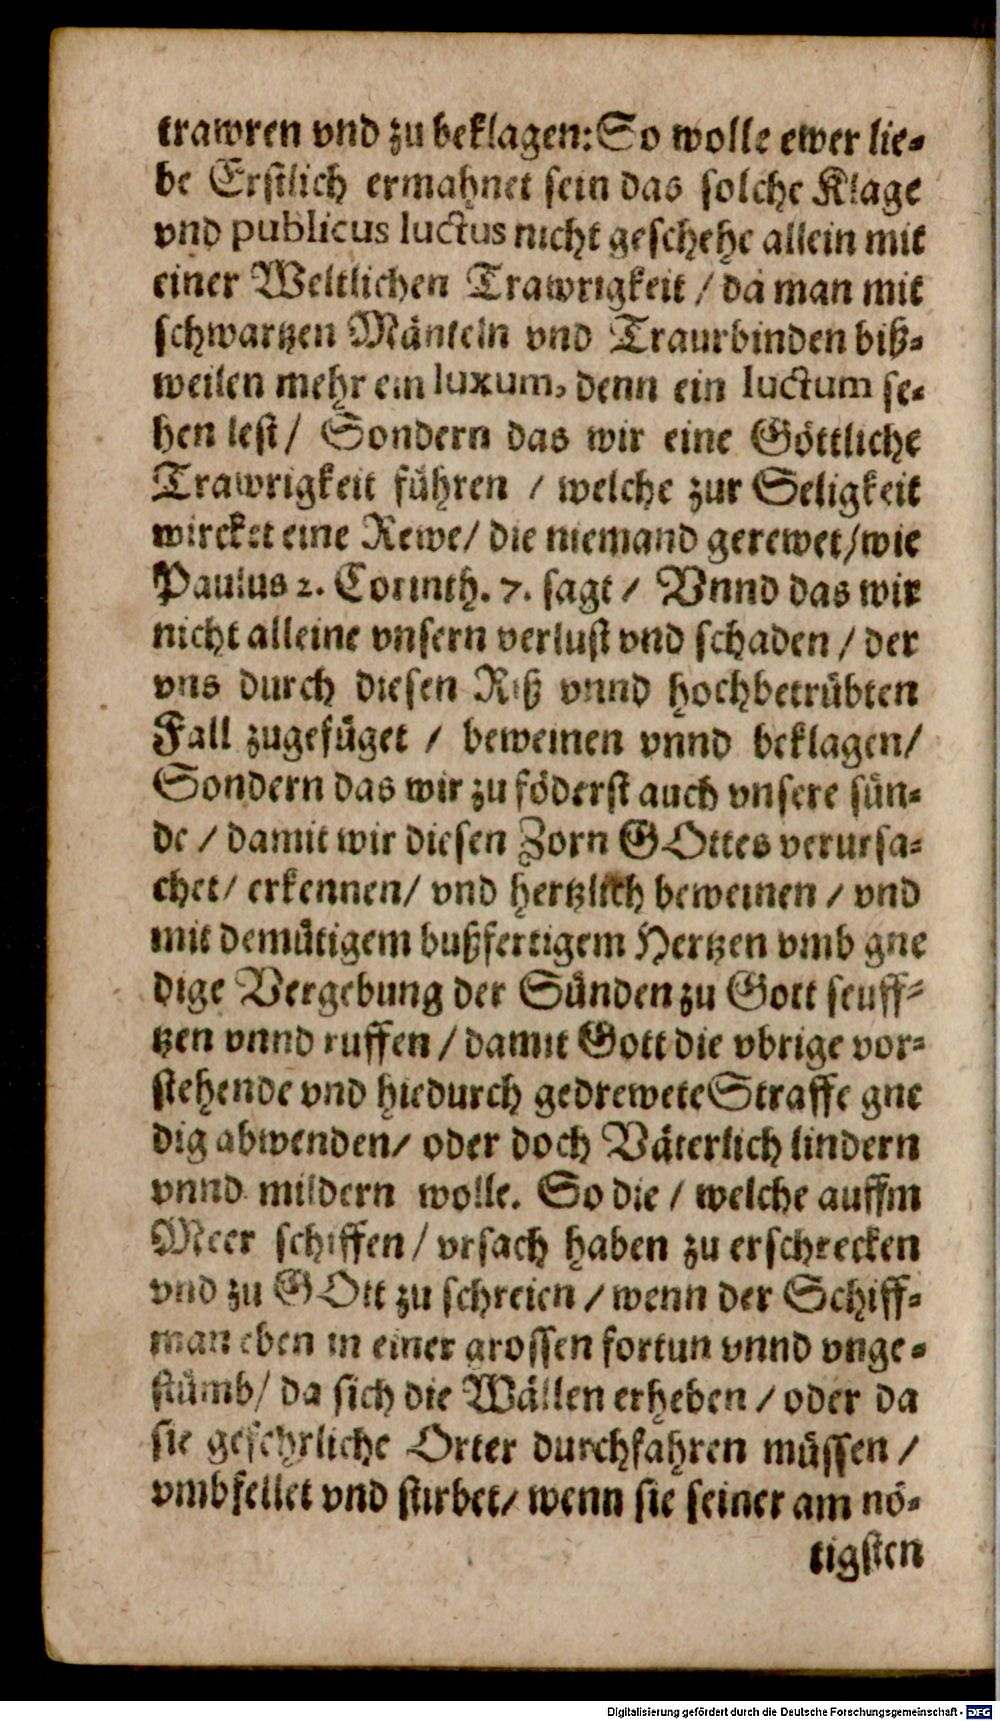 trawren vnd zu beklagen: So wolle ewer lie-
be Erstlich ermahnet sein das solche Klage
vnd publicus luctus nicht geschehe allein mit
einer Weltlichen Trawrigkeit / da man mit
schwartzen Mänteln vnd Traurbinden biß-
weilen mehr ein luxum, denn ein luctum se-
hen lest / Sondern das wir eine Göttliche
Trawrigkeit führen / welche zur Seligkeit
wircket eine Rewe / die niemand gerewet / wie
Paulus 2. Corinth. 7. sagt / Vnnd das wir
nicht alleine vnsern verlust vnd schaden / der
vns durch diesen Riß vnnd hochbetrübten
Fall zugefüget / beweinen vnnd beklagen /
Sondern das wir zu föderst auch vnsere sün-
de / damit wir diesen Zorn GOttes verursa-
chet / erkennen / vnd hertzlich beweinen / vnd
mit demütigem bußfertigem Hertzen vmb gne
dige Vergebung der Sünden zu Gott seuff-
tzen vnnd ruffen / damit Gott die vbrige vor-
stehende vnd hiedurch gedrewete Straffe gne
dig abwenden / oder doch Väterlich lindern
vnnd mildern wolle. So die / welche auffm
Meer schiffen / vrsach haben zu erschrecken
vnd zu GOtt zu schreien / wenn der Schiff-
man eben in einer grossen fortun vnnd vnge-
stümb / da sich die Wällen erheben / oder da
sie gefehrliche Orter durchfahren müssen /
vmbfellet vnd stirbet / wenn sie seiner am nö-
tigsten
Digitalisierung gefördert durch die Deutsche Forschungsgemeinschaft - DFG